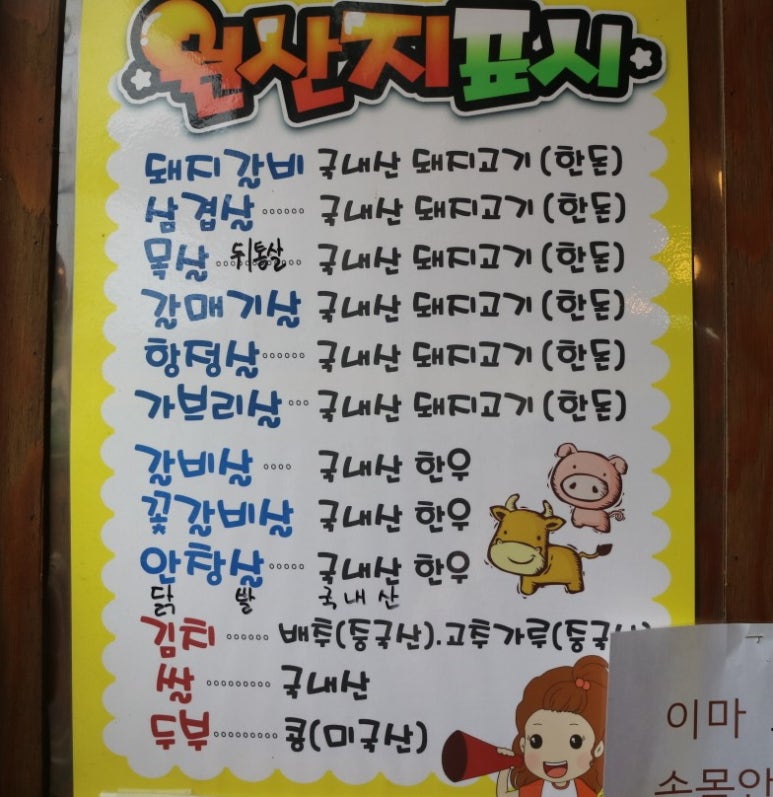 원산지표시
돼지갈비 국내산 돼지고기 (한돈)
삼겹살 ...... 국내산 돼지고기 (한돈)
목살 뒤통살 국내산 돼지고기 (한돈)
갈매기살 국내산 돼지고기 (한돈)
항정살 ...... 국내산 돼지고기 (한돈)
가브리살 ... 국내산 돼지고기 (한돈)
갈비살 .... 국내산 한우
꽃갈비살 국내산 한우
안창살 ..... 국내산 한우
닭 발 국내산
김치 ...... 배추(중국산).고추가루(중국산)
쌀 ......... 국내산
두부 ......... 콩(미국산)
이마
손목안